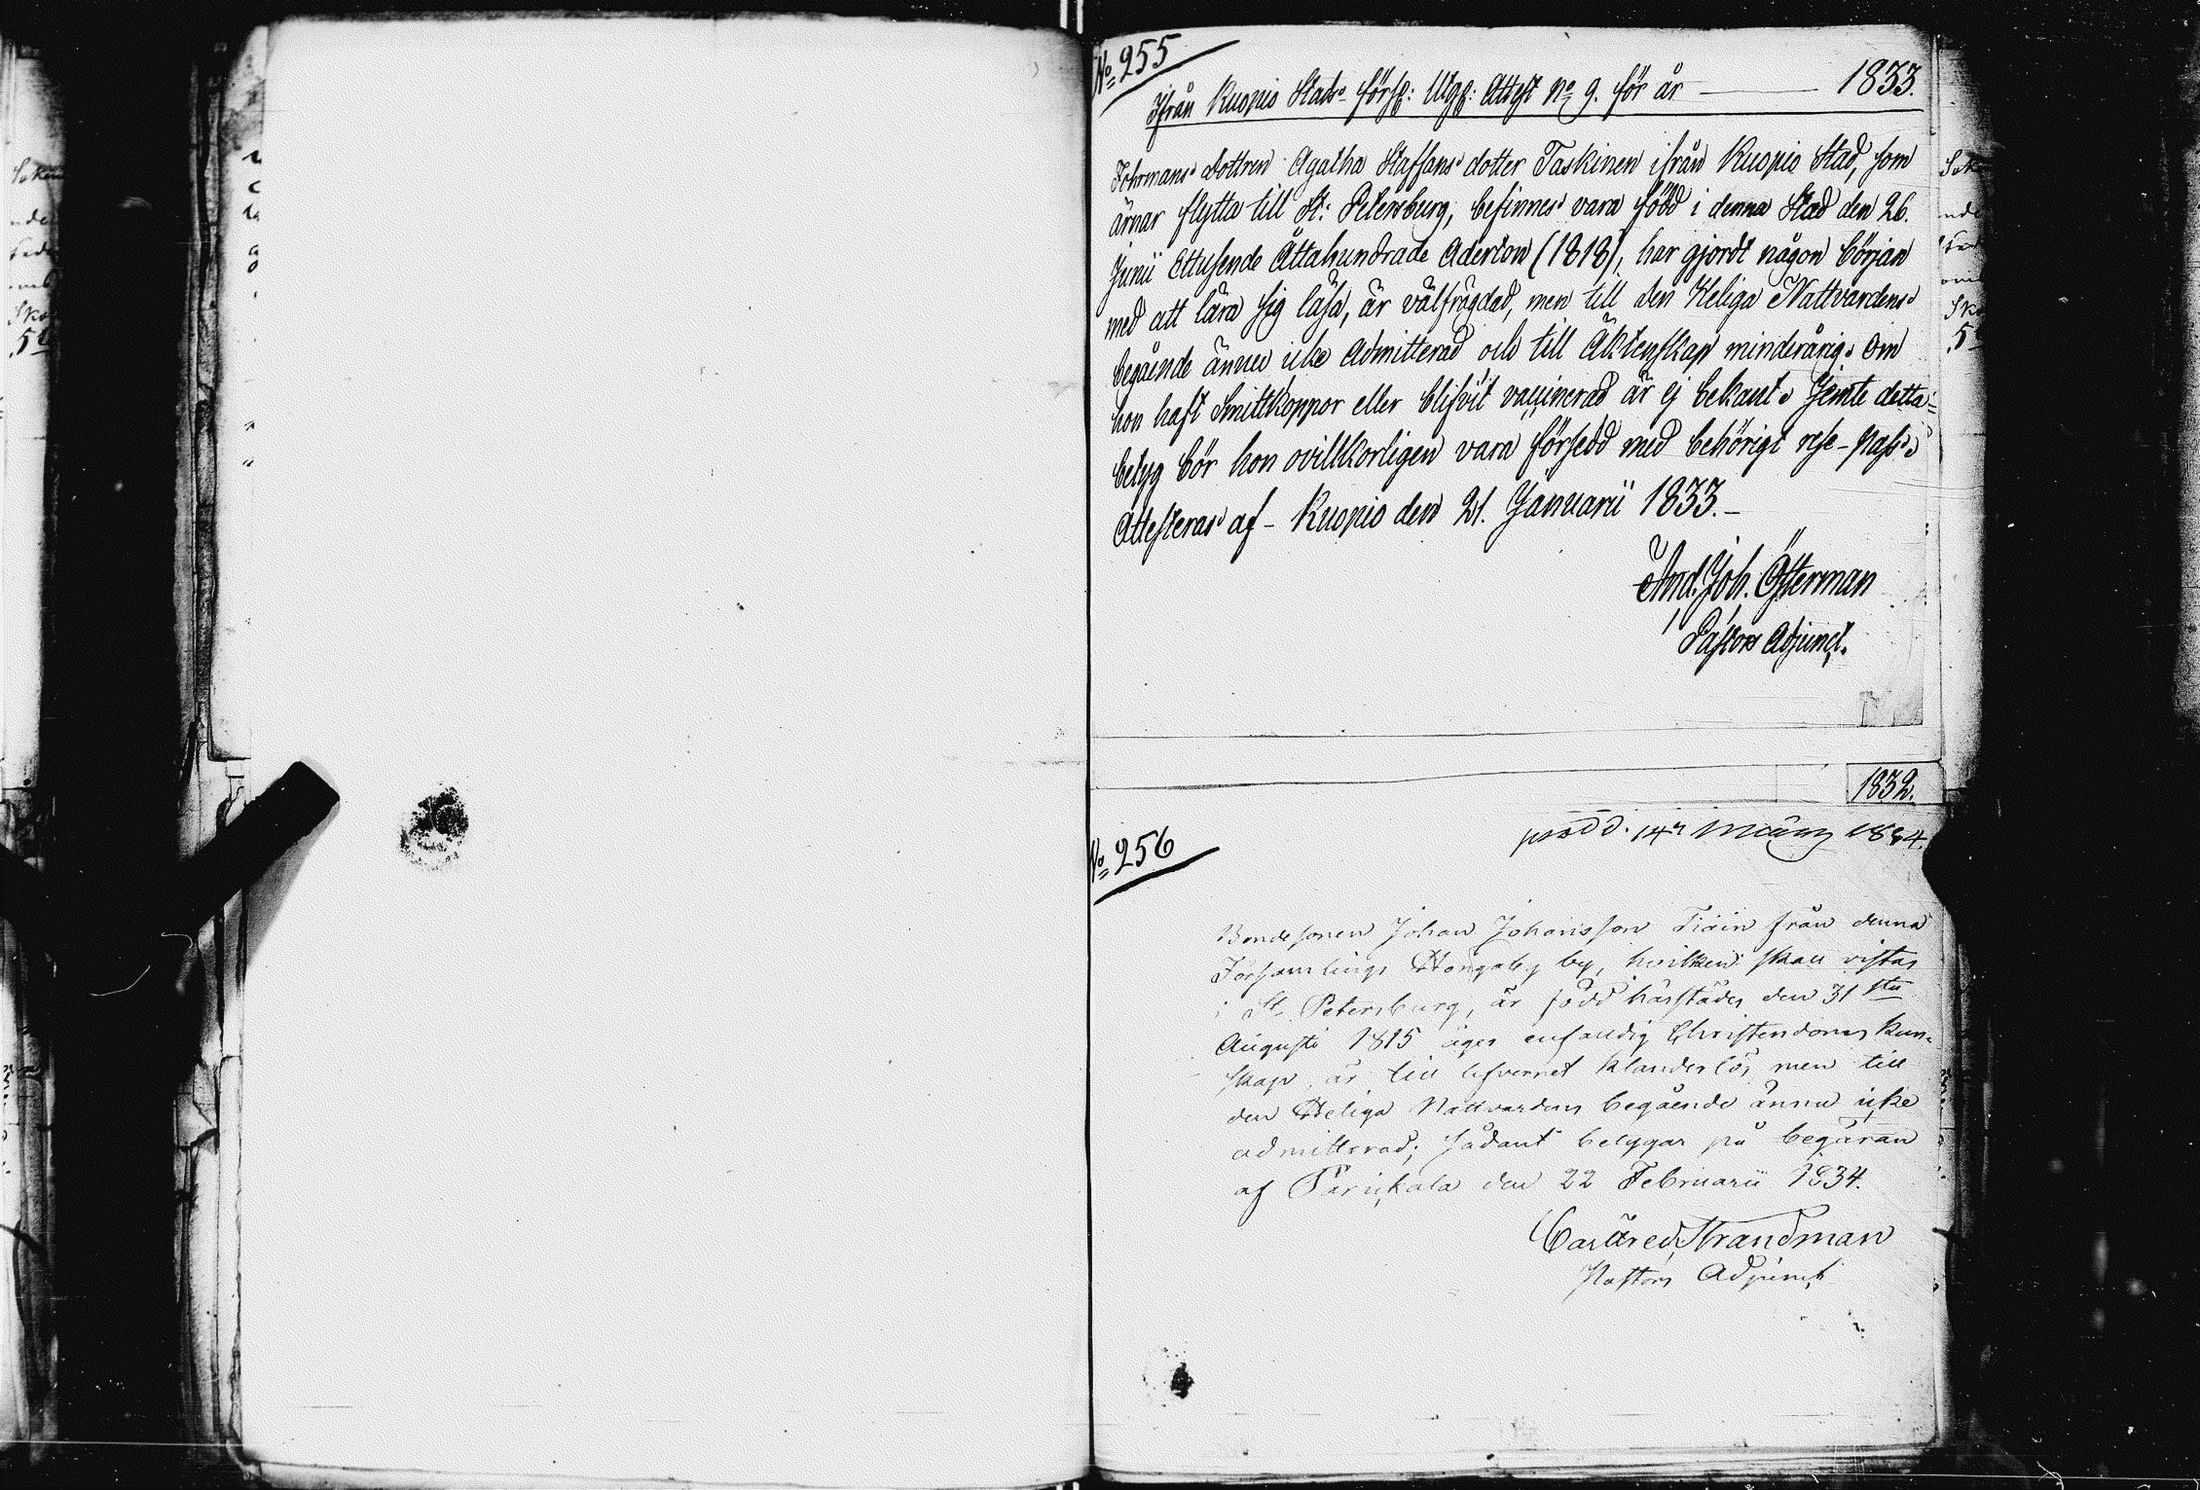 No 255
Ifrån Kuopio Stads förs: Utg: Attest No 9. för år — 1833.
Fohrmans dottren Agatha Staffans dotter Taskinen ifrån Kuopio Stad, som
ärnar flytta till St: Petersburg, befinnes vara född i denna Stad den 26.
Junii Ettusende Åttahundrade Aderton (1818), har gjordt någon början
med att lära sig läsa, är välfrägdad, men till den Heliga Nattvardens
begående ännu icke Admitterad och till Äktenskap minderårig. Om
hon haft Smittkoppor eller blifvit vaccinerad är ej bekant. Jemte detta
betyg bör hon ovillkorligen vara försedd med behörigt rese-pass.
Attesteras af Kuopio den 21. Januarii 1833.
And. Joh. Österman
Pastors Adjunct.
1832.
prodd. 14 März 1834.
No 256
Bondesonen Johan Johansson Tiäin från denna
Församlings by, hvilken skall vistas
i St. Petersburg, är född härstädes den 31sta
Augusti 1815 äger enfaldig Christendoms kun-
skap, är till lefvernet klanderlös, men till
den Heliga Nattvardens begående ännu icke
admitterad; sådant betygar på begäran
af Parickala den 22 Februarii 1834.
Strandman
Pastors Adjunct